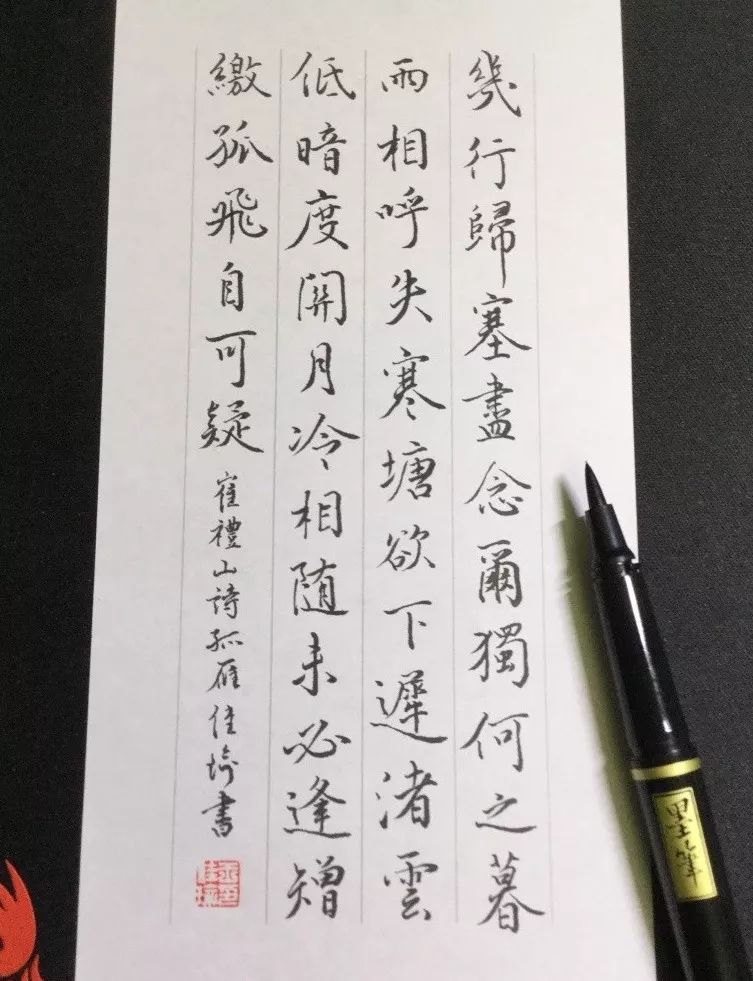 幾行歸塞盡念爾獨何之暮
雨相呼失寒塘欲下遲渚雲
低暗度關月冷相随未必逢矰
繳孤飛自可疑
崔禮山詩孤雁佳埼書
墨筆